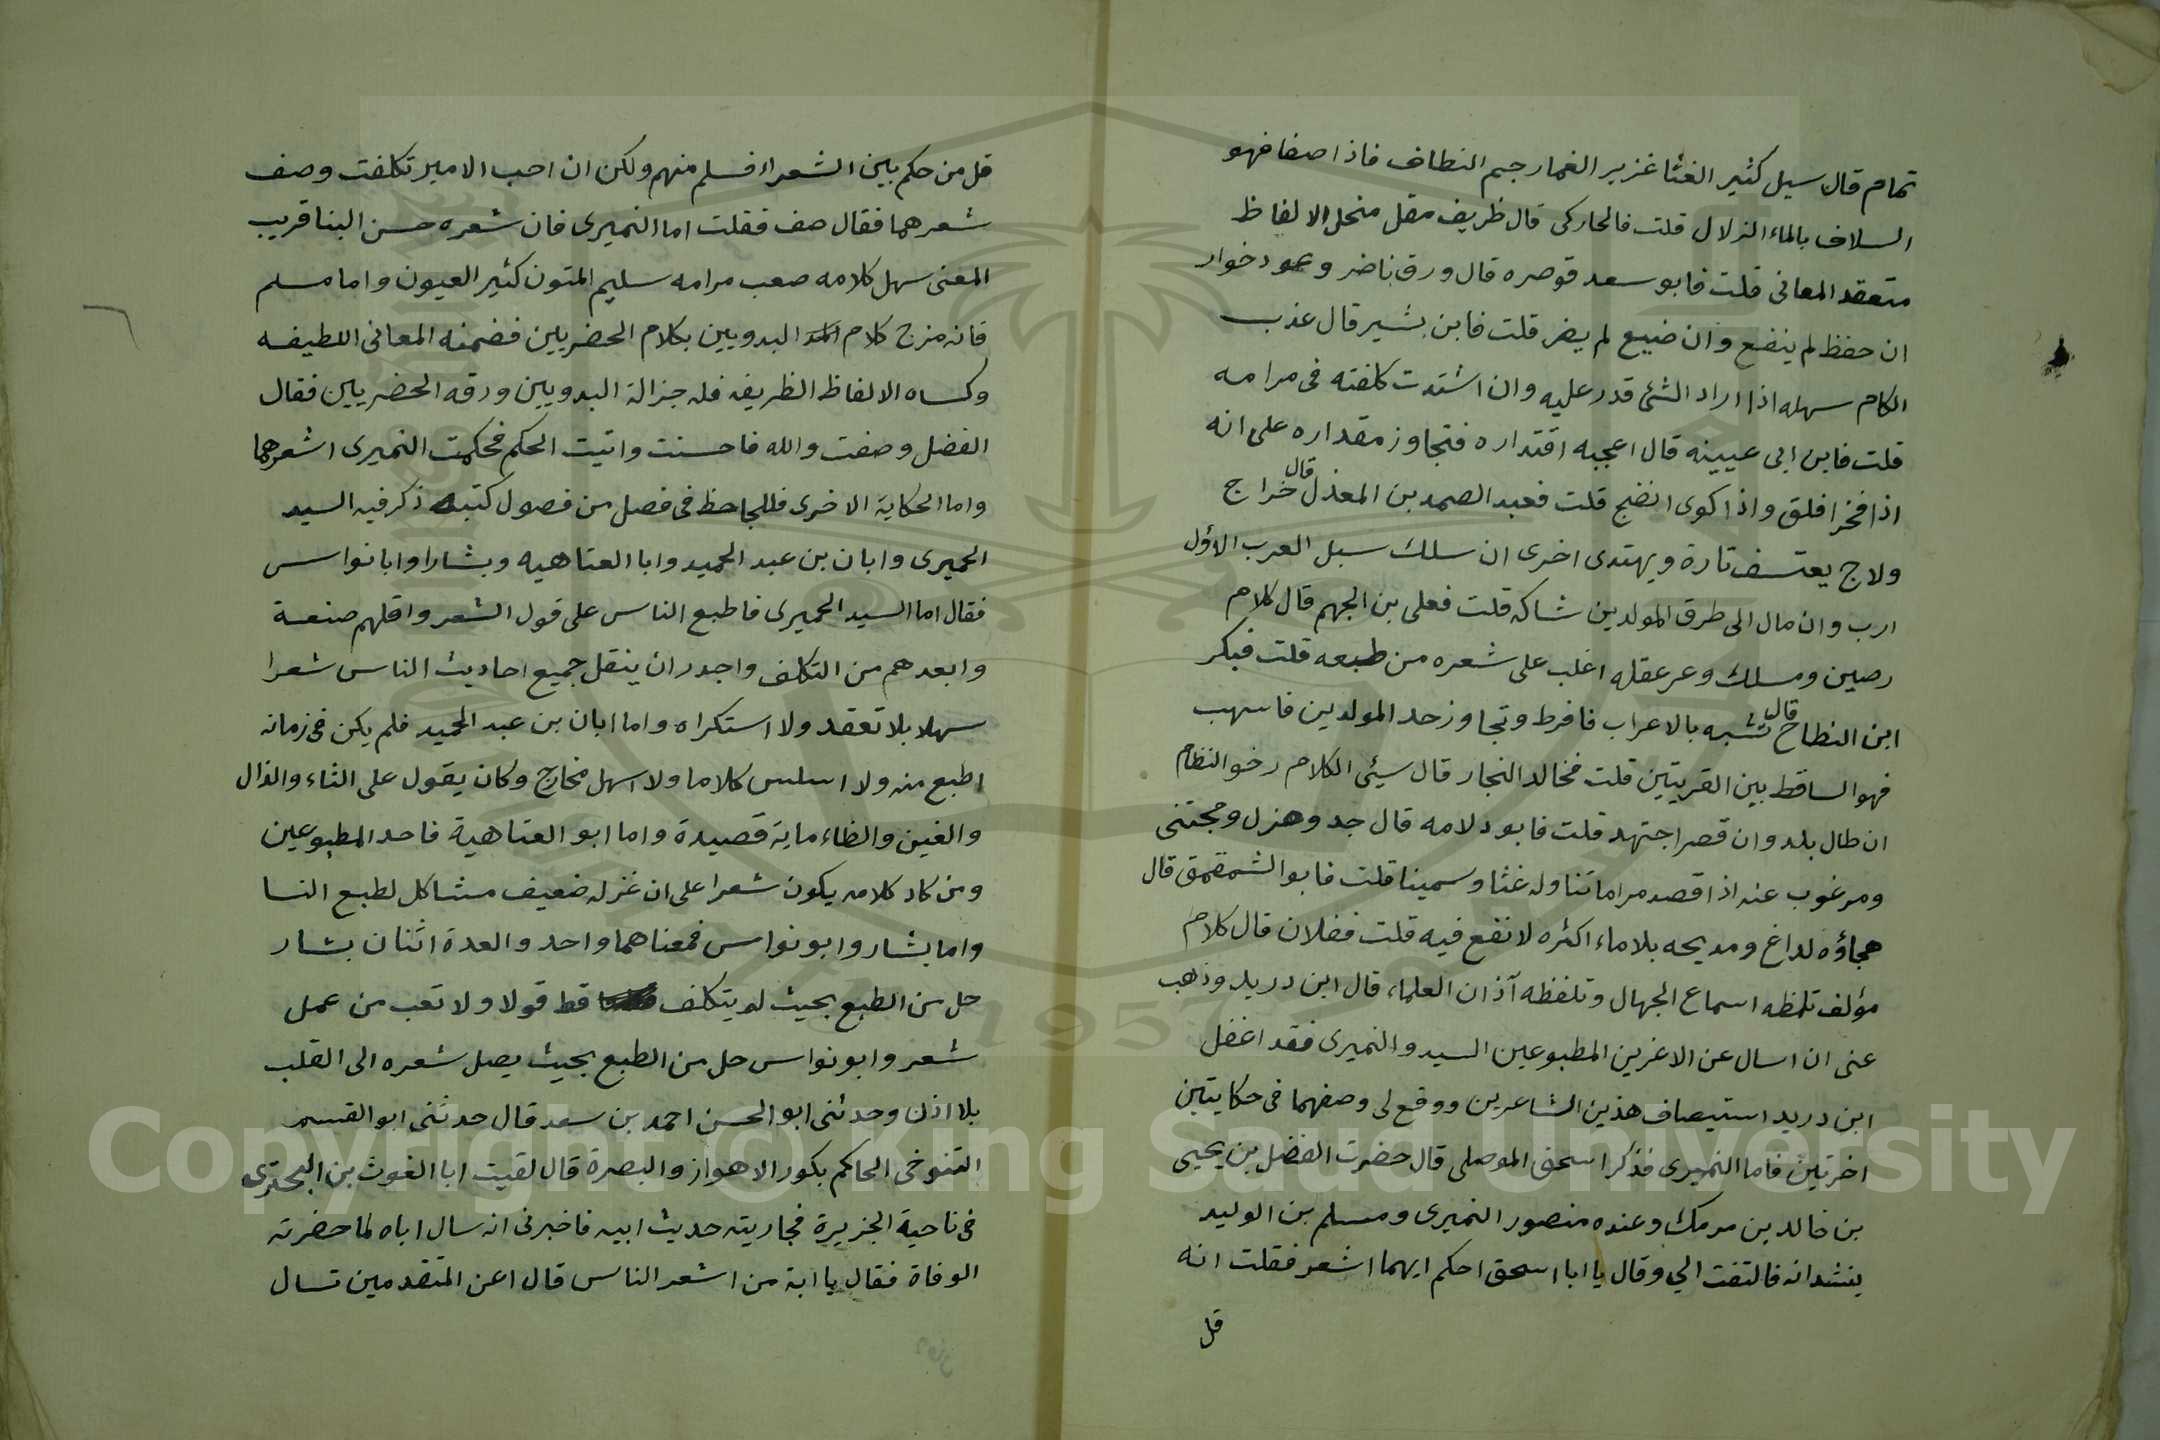 تمام قال سيل كثير الغثا غزير الغمار جم النطاف فاذا صفا فهو
السلاف بالماء الزلال قلت فالحاركى قال ظريف مقل منحل الالفاظ
متعقد المعانى قلت فابو سعد قوصره قال ورق ناضر وعود خوار
ان حفظ لم ينفع وان ضيع لم يضر قلت فابن بشير قال عذب
الكلام سهله اذا اراد الشئ قدر عليه وان اشتدت كلفته فى مرامه
قلت فابن ابى عيينه قال اعجبه اقتداره فتجاوز مقداره على انه
اذا فخر افلق واذا كوى انضج قلت فعبد الصمد بن المعذل قال خراج
ولاج يعتسف تارة ويهتدى اخرى ان سلك سبل العرب الاول
ارب وان مال الى طرق المولدين شاكه قلت فعلى بن الجهم قال كلام
رصين ومسلك وعر عقله اغلب على شعره من طبعه قلت فبكر
ابن النطاح قال تشبه بالاعراب فافرط وتجاوز حد المولدين فاسهب
فهو الساقط بين القريتين قلت فخالد النجار قال سيئ الكلام رخو النظام
ان طال بلد وان قصر اجتهد قلت فابو دلامه قال جد وهزل ومجتنى
ومرغوب عنه اذا قصد مراما تناوله غثا وسمينا قلت فابو الشمقمق قال
هجاؤه لداغ ومديحه بلا ماء اكثره لا نفع فيه قلت ففلان قال كلام
مؤلف تلمظه اسماع الجهال وتلفظه آذان العلماء قال ابن دريد وذهب
عنى ان اسال عن الاغرين المطبوعين السيد والنميرى فقد اغفل
ابن دريد استيصاف هذين الشاعرين ووقع لى وصفهما فى حكايتين
اخرتين فاما النميرى فذكر اسحق الموصلى قال حضرت الفضل بن يحيى
بن خالد بن مرمك وعنده منصور النميرى ومسلم بن الوليد
ينشدانه فالتفت الي وقال يا ابا اسحق احكم ايهما اشعر فقلت انه
قل
قل من حكم بين الشعراء فسلم منهم ولكن ان احب الامير تكلفت وصف
شعرهما فقال صف فقلت اما النميرى فان شعره حسن البنا قريب
المعنى سهل كلامه صعب مرامه سليم المتون كثير العيون واما مسلم
فانه مزج كلام البدويين بكلام الحضريين فضمنه المعانى اللطيفه
وكساه الالفاظ الظريفه فله جزالة البدويين ورقه الحضريين فقال
الفضل وصفت والله فاحسنت واتيت الحكم فحكمت النميرى اشعرهما
واما الحكاية الاخرى فللجاحظ فى فصل من فصول كتبه ذكر فيه السيد
الحميرى وابان بن عبد الحميد وابا العتاهيه وبشارا وابا نواس
فقال اما السيد الحميرى فاطبع الناس على قول الشعر واقلهم صنعة
وابعدهم من التكلف واجدر ان ينقل جميع احاديث الناس شعرا
سهلا بلا تعقد ولا استكراه واما ابان بن عبد الحميد فلم يكن فى زمانه
اطبع منه ولا اسلس كلاما ولا اسهل مخارج وكان يقول على الثاء والذال
والغين والظاء ماية قصيدة واما ابو العتاهية فاحد المطبوعين
ومن كاد كلامه يكون شعرا على ان غزله ضعيف مشاكل لطبع النسا
واما بشار وابو نواس فمعناهما واحد والعدة اثنان بشار
حل من الطبع بحيث لم يتكلف قط قولا ولا تعب من عمل
شعر وابو نواس حل من الطبع بحيث يصل شعره الى القلب
بلا اذن وحدثنى ابو الحسن احمد بن سعد قال حدثنى ابو القسم
التنوخى الحاكم بكور الاهواز والبصرة قال لقيت ابا الغوث بن البحترى
فى ناحية الجزيرة فجاريته حديث ابيه فاخبرنى انه سال اباه لما حضرته
الوفاة فقال يا ابة من اشعر الناس قال اعن المتقدمين تسال
Copyright © King Saud University
1957